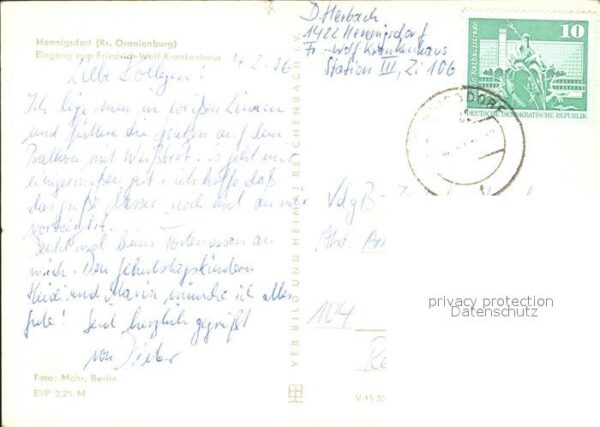 Hennigsdorf (Kr. Oranienburg)
Eingang zum Friedrich-Wolf-Krankenhaus
Liebe Kollegen! 4.2.76
Ich liege nun in weißen Linnen
und füttere die Spatzen auf dem
Balkon mit Weißbrot. Es geht mir
einigermaßen gut, ich hoffe, daß
das große Messer noch mal an mir
vorbeigeht.
Denkt mal beim Tortenessen an
mich. Den Geburtstagskindern
Heidi und Maria wünsche ich alles
Gute! Seid herzlich gegrüßt
von Dieter
Foto: Mohr, Berlin
EVP 0,25 M
VEB BILD UND HEIMAT REICHENBACH I. V.
V 11 50
D. Herbach
1422 Hennigsdorf
Fr.-Wolf-Krankenhaus
Station III, Zi 106
10
DEUTSCHE DEMOKRATISCHE REPUBLIK
VdgB-
Abt.
104
privacy protection
Datenschutz